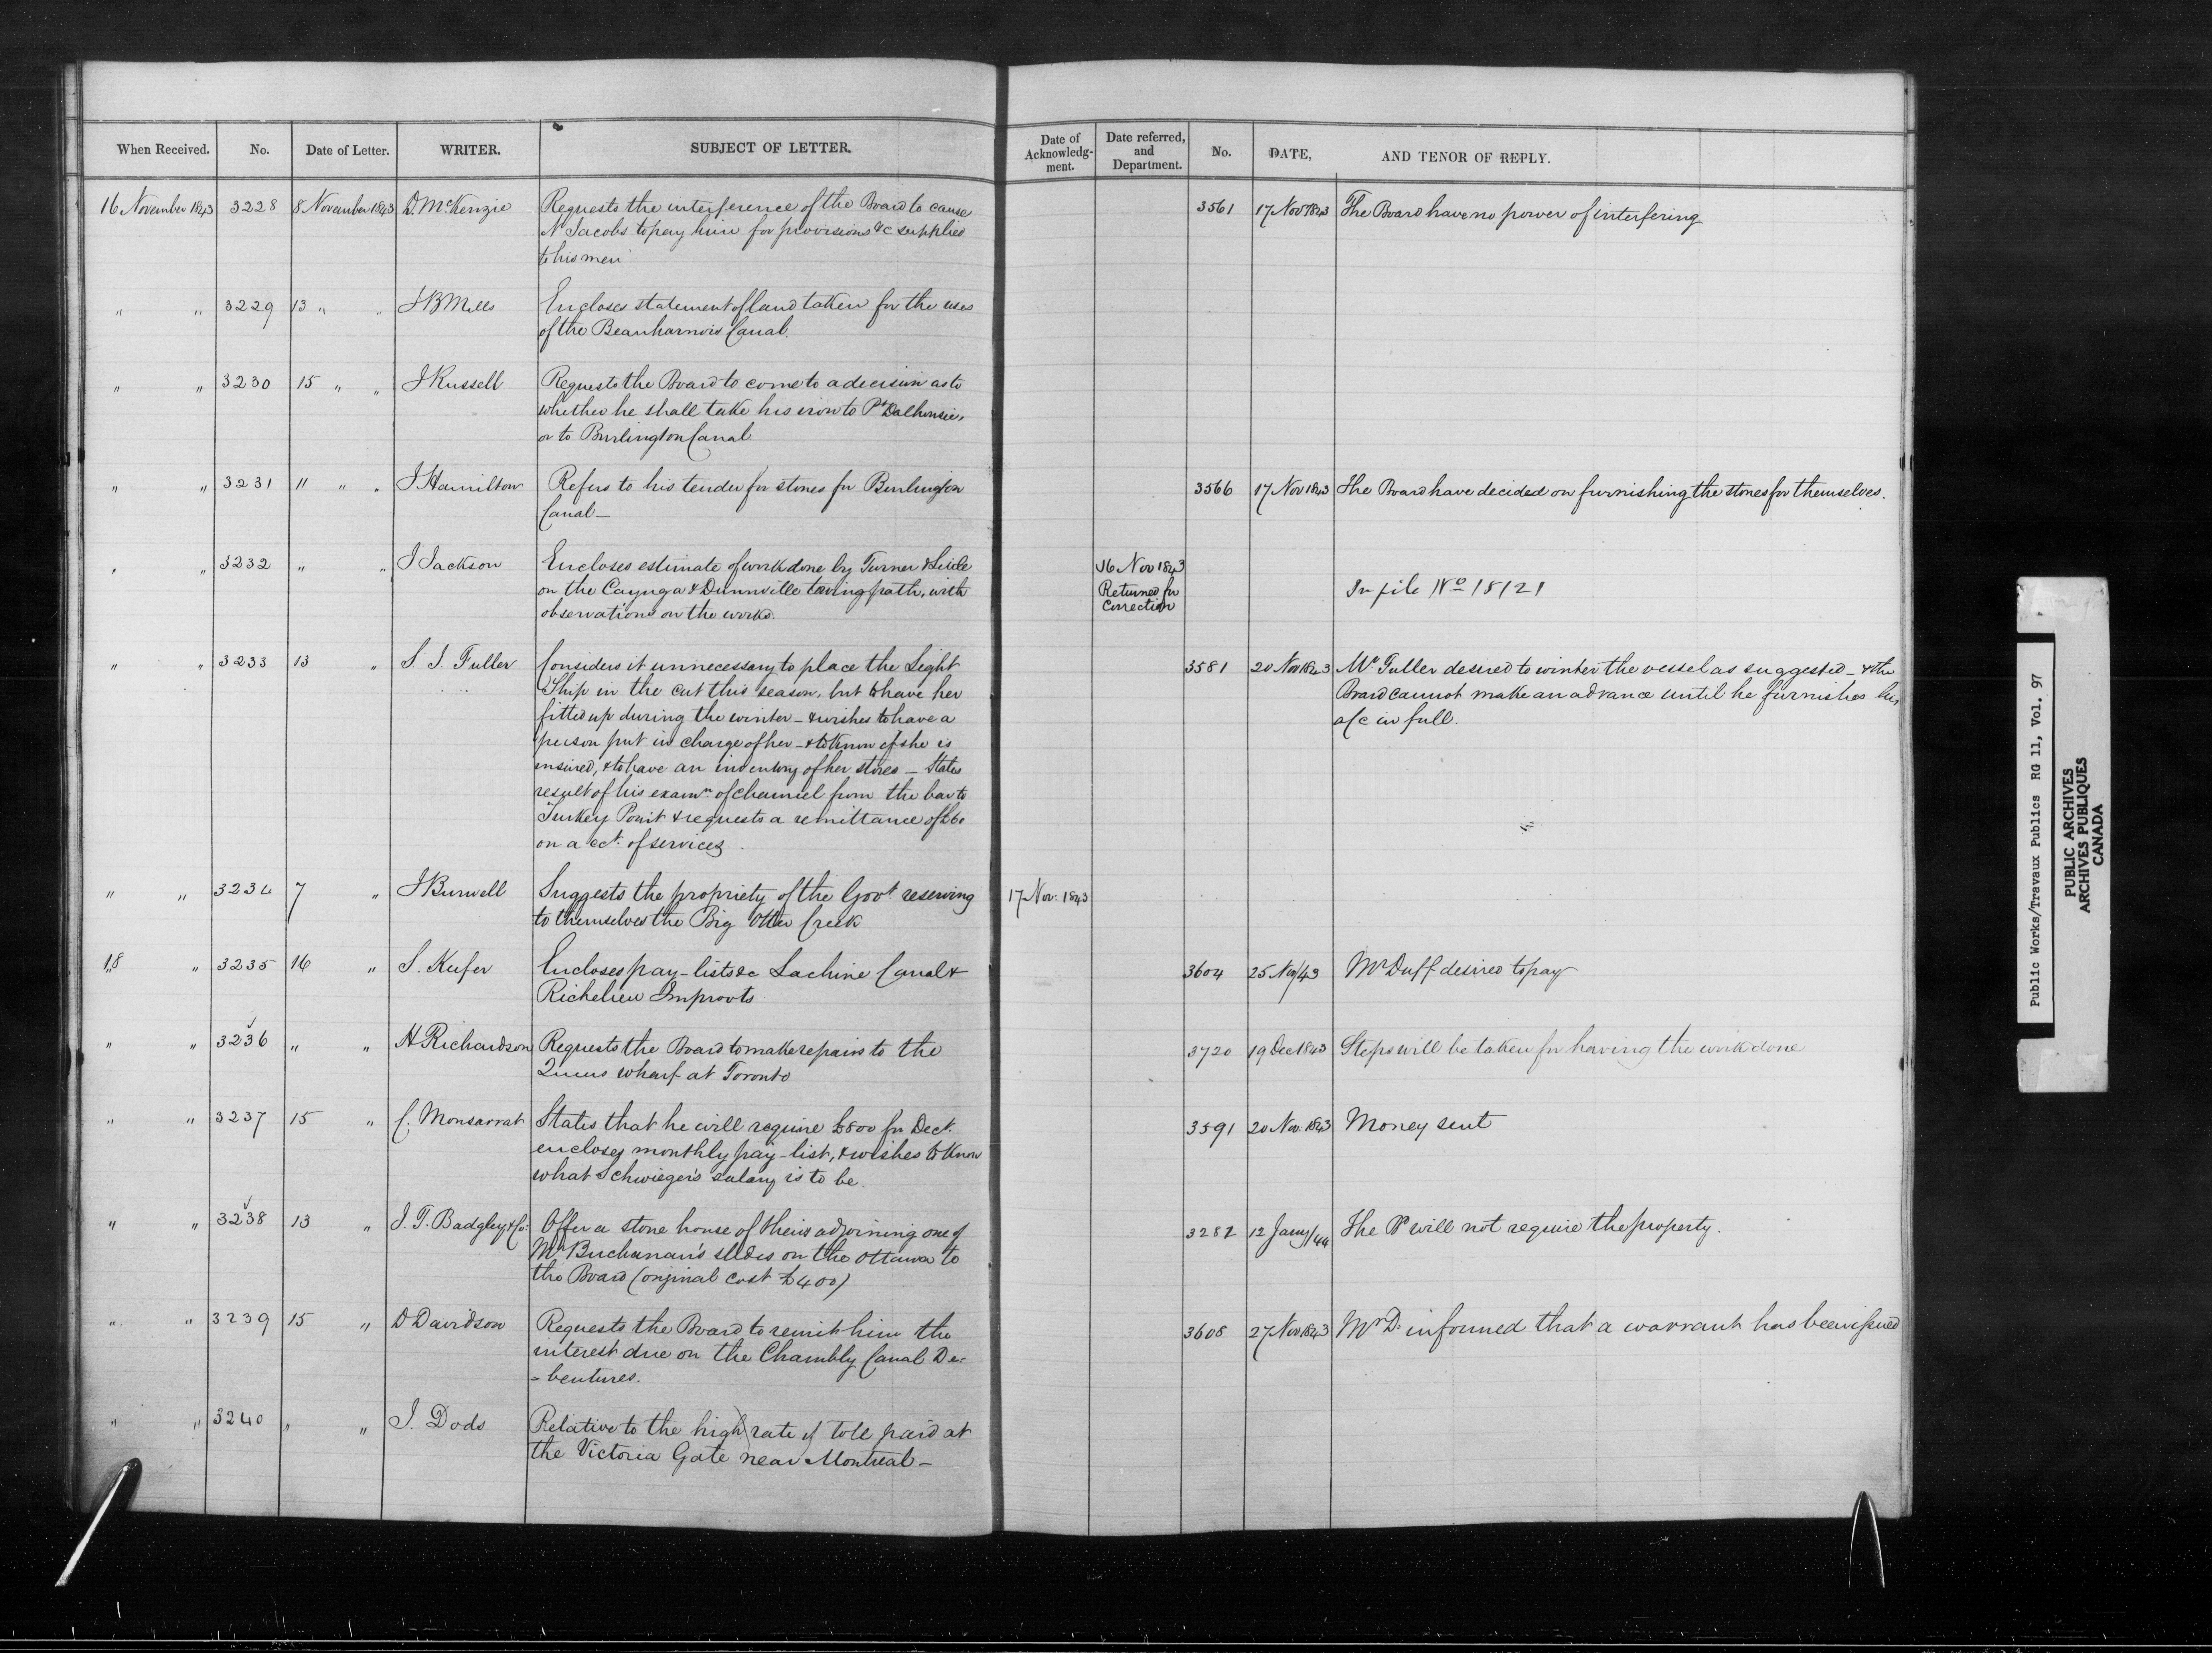 When Received. No. Date of Letter. WRITER. SUBJECT OF LETTER.
Date of Acknowledg-ment. Date referred, and Department. No. DATE, AND TENOR OF REPLY.
16 November 1843 3228 8 November 1843 D. McKenzie Requests the interference of the Board to cause
N. Jacobs to pay him for provisions &c supplied
to his men
3561 17 Nov 1843 The Board have no power of interfering
" " 3229 13 " " J B Mills Encloses statement of land taken for the uses
of the Beauharnois Canal.
" " 3230 15 " " J Russell Requests the Board to come to a decision as to
whether he shall take his iron to Pt Dalhousie,
or to Burlington Canal
" " 3231 11 " " J Hamilton Refers to his tender for stones for Burlington
Canal—
3566 17 Nov 1843 The Board have decided on furnishing the stones for themselves.
" " 3232 " " J Jackson Encloses estimate of work done by Turner &
on the Cayuga & Dunnville towing path, with
observations on the works.
16 Nov 1843
Returned for
Correction
In file No 18121
" " 3233 13 " S. J. Fuller Considers it unnecessary to place the Light
Ship in the cut this season, but to have her
fitted up during the winter – & wishes to have a
person put in charge of her – & to know if she is
insured, & to have an inventory of her stores – States
result of his examn of channel from the bar to
Turkey Point & requests a remittance of £60
on acct. of services.
3581 20 Nov 1843 Mr Fuller desired to winter the vessel as suggested – & the
Board cannot make an advance until he furnishes his
a/c in full.
" " 3234 7 " J Burwell Suggests the propriety of the Govt reserving
to themselves the Big Otter Creek
17 Nov. 1843
18 " 3235 16 " S. Keefer Encloses pay-lists &c Lachine Canal &
Richelieu Improvts
3604 25 Nov/43 Mr Duff desired to pay
" " 3236 " " H Richardson Requests the Board to make repairs to the
Queens wharf at Toronto
3720 19 Dec 1843 Steps will be taken for having the work done
" " 3237 15 " C. Monsarrat States that he will require £800 for Dect.
encloses monthly pay-list, & wishes to know
what Schwieger's salary is to be.
3591 20 Nov. 1843 Money sent
" " 3238 13 " J. T. Badgley & Co. Offer a stone house of theirs adjoining one of
Mr Buchanan's slides on the Ottawa to
the Board (original cost £400)
3282 12 Jany/44 The Bd will not require the property.
" " 3239 15 " D Davidson Requests the Board to remit him the
interest due on the Chambly Canal De=
=bentures.
3608 27 Nov 1843 Mr D. informed that a warrant has been issued
" " 3240 " " J. Dods Relative to the high rate of toll paid at
the Victoria Gate near Montreal –
Public Works/Travaux Publics RG 11, Vol. 97
PUBLIC ARCHIVES
ARCHIVES PUBLIQUES
CANADA